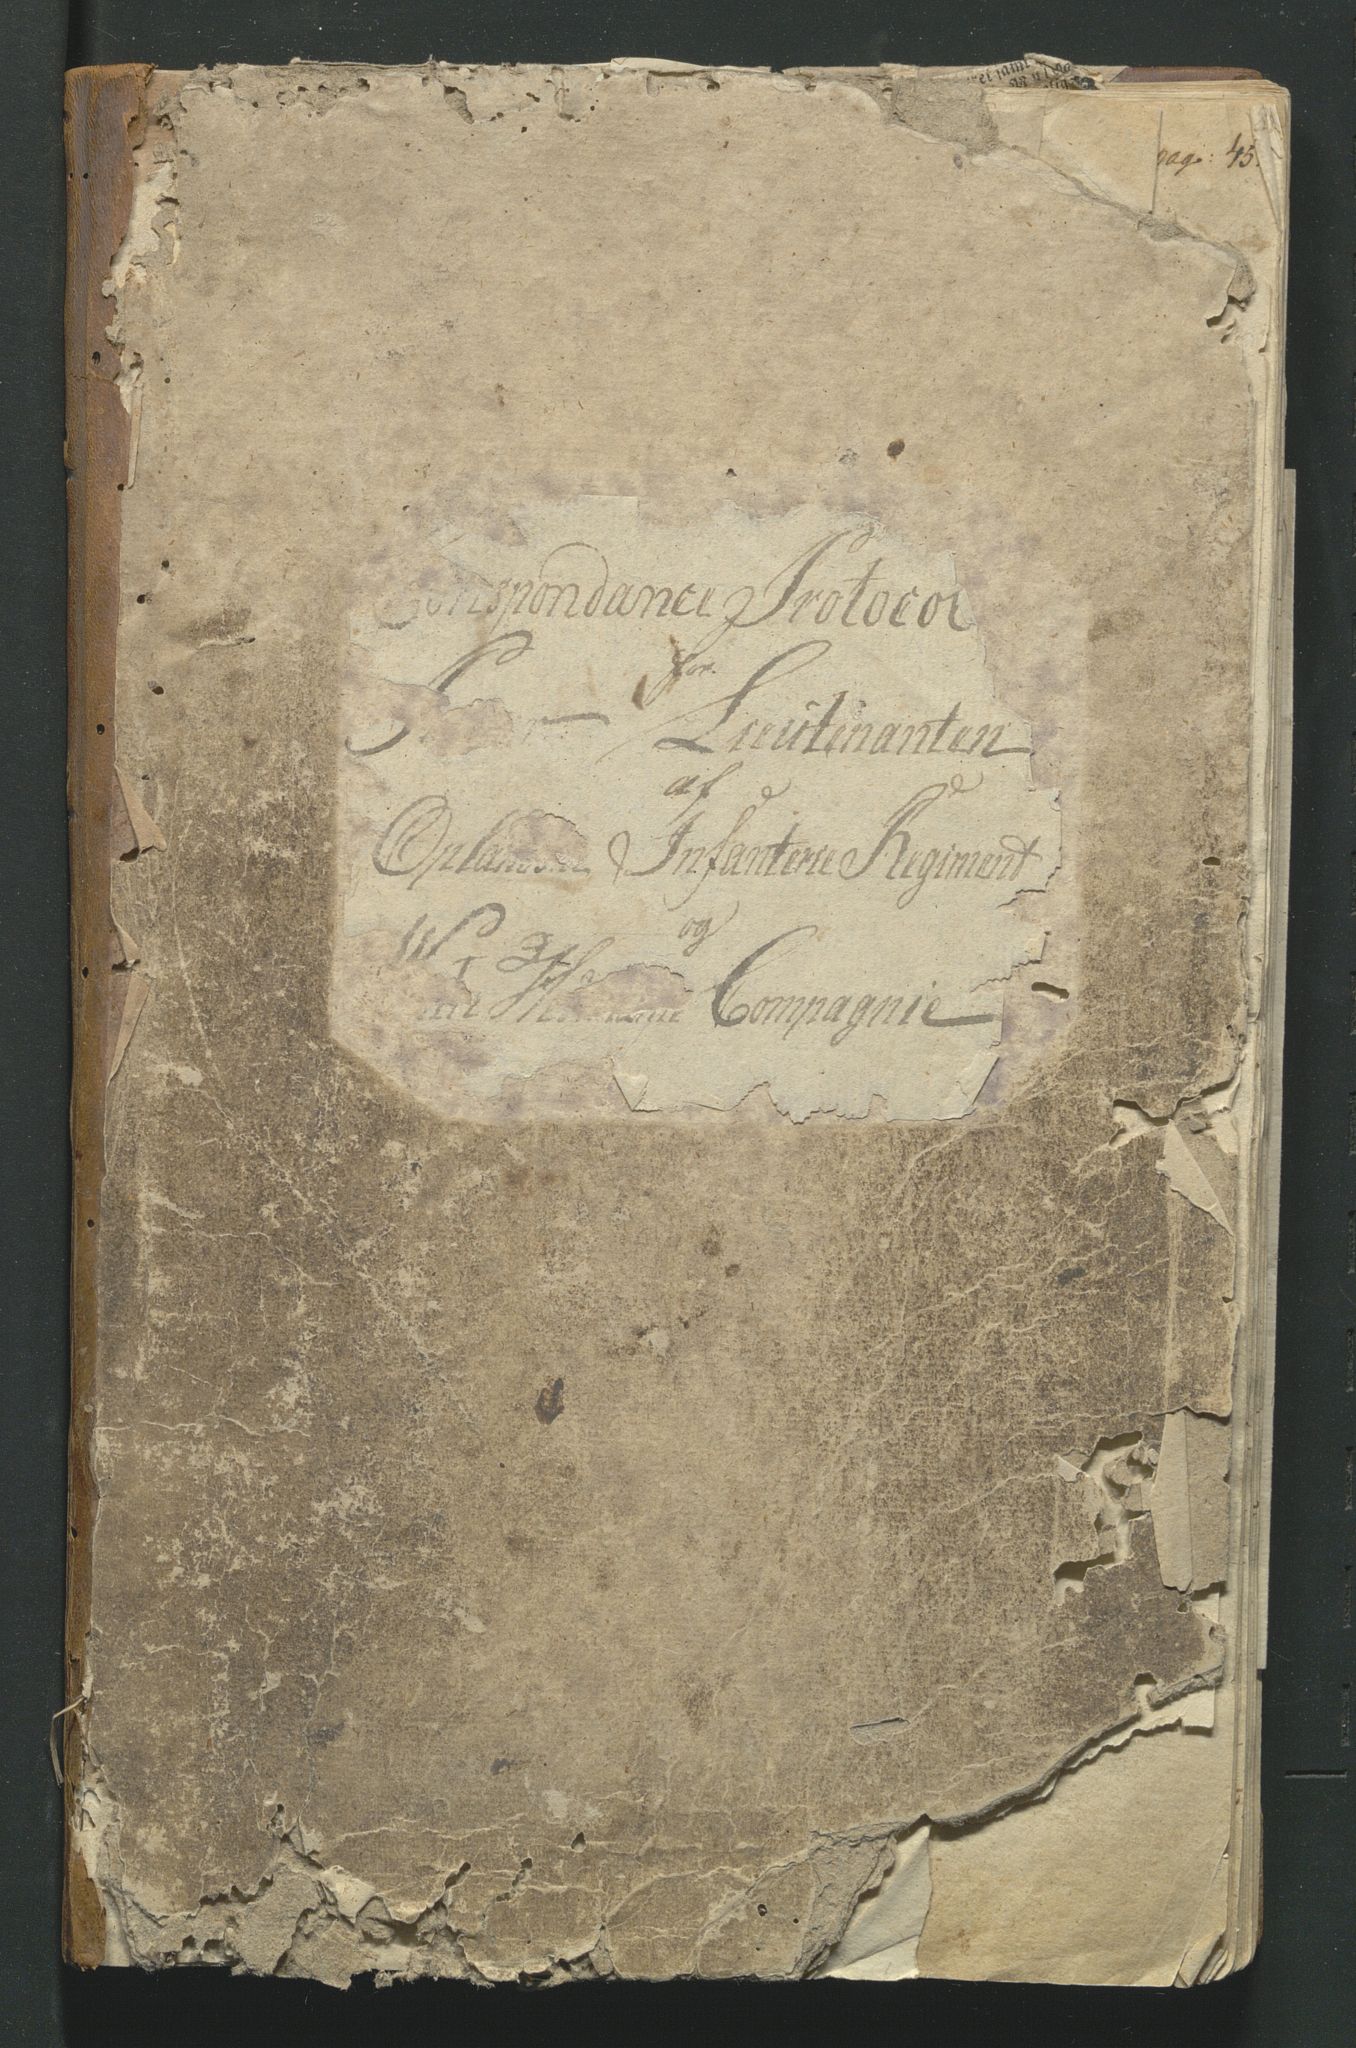 pag: 45.
Correspondance Protocol
for
Lieutenanten
af
Oplandske Infanterie Regiment
og
Compagnie